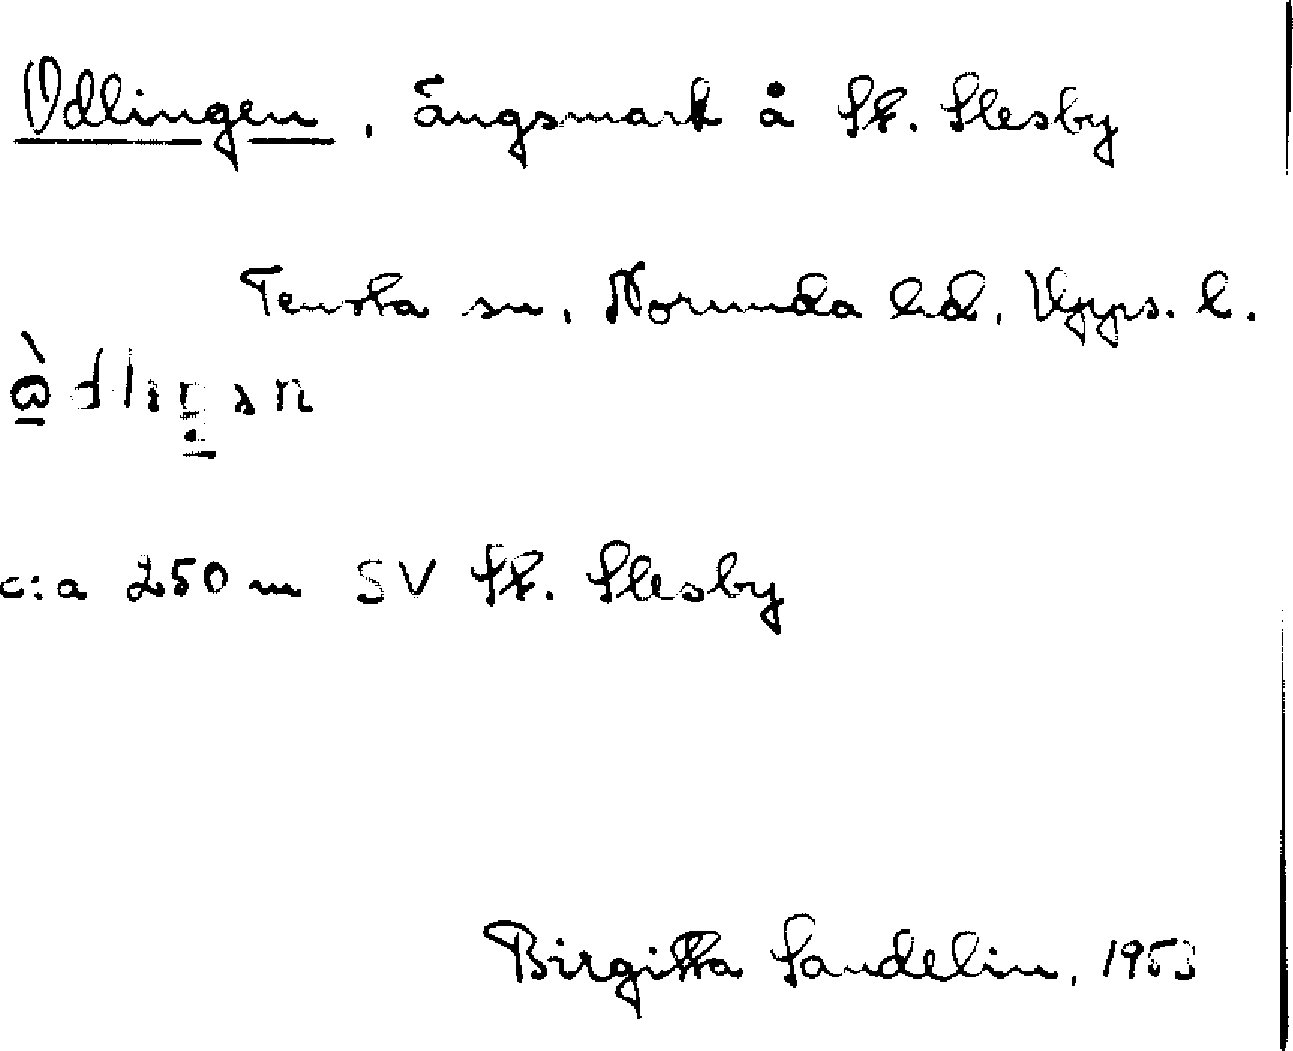 Odlingen, ängsmark å St. Slesby
Tensta sn, Norunda hd, Upps. l.
c:a 250 m SV St. Slesby
Birgitta Sandelin, 1953